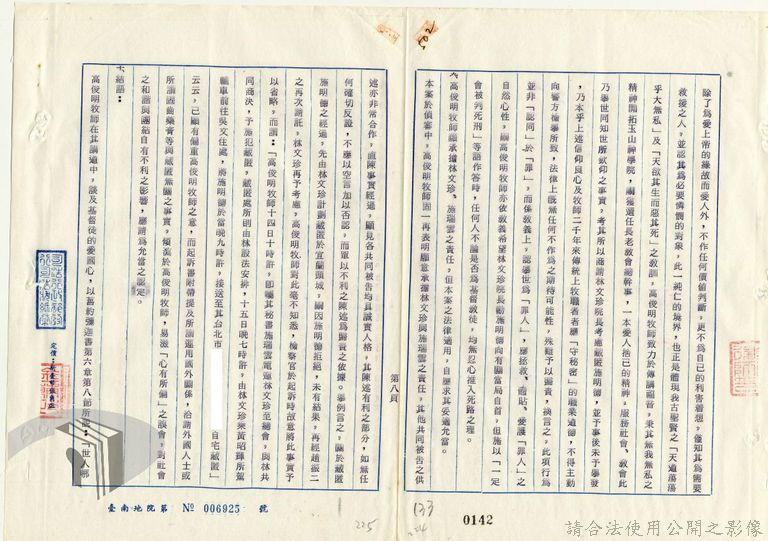 502
除了為愛上帝的緣故而愛人外，不作任何價值判斷，更不為自己的利害着想，僅知其為需要
救援之人，並認其為必要憐憫的對象，此一純仁的境界，也正是體現我古聖賢之「天道蕩蕩
乎大無私」及「天欲其生而惡其死」之教訓，高俊明牧師致力於傳講福音，秉其無我無私之
精神開拓玉山神學院，嗣獲選任長老教會總幹事，一本愛人捨己的精神，服務社會、教會此
乃舉世同知世所欽仰之事實，考其所以商請林文珍院長考慮藏匿施明德，並予事後未予舉發
，乃本乎上述信仰良心及牧師二千年來傳統上牧職者應「守秘密」的職業道德，不得主動
向警方檢舉所致，法律上既無任何不作為之期待可能性，殊難予以歸責，換言之，此項行為
並非「認同」於「罪」，而係教義上，認舉世為「罪人」，應拯救、勸勉、愛護「罪人」之
自然心性，嗣高俊明牧師亦依教義希望林文珍院長勸施明德向有關當局自首，但施以「一定
會被判死刑」等語作答時，任何人不論是否為基督教徒，均無忍心推入死路之理。
高俊明牧師願承擔林文珍、施瑞雲之責任，但本案之法律適用，自應求其妥適允當。
本案於偵審中，高俊明牧師固一再表明願意承擔林文珍與施瑞雲之責任，其他共同被告之供
133
0142
第八頁
述亦非常合作，直陳事實經過，顯見各共同被告均具誠實人格，其陳述有利之部分，如無任
何確切反證，不應以空言加以否認，而單以不利之陳述為歸責之依據。舉例言之，關於藏匿
施明德之經過，先由林文珍計劃藏匿於宜蘭頭城，嗣因施明德拒絕，未有結果，再經趙振二
之再次請託，林文珍再予考慮，高俊明牧師對此毫不知悉，檢察官於起訴時故意將此事實予
以省略，而謂：「高俊明牧師十四日十時許，即囑其秘書施瑞雲電邀林文珍至總會，與林共
同商決，予施犯藏匿，藏匿處所則由林設法安排，十五日晚七時許，由林文珍乘黃昭輝所駕
轎車前往吳文住處，將施明德於當晚九時許，接送至其台北市　　　　自宅藏匿」
云云，已顯有偏重高俊明牧師之意，而起訴書附帶提及所謂運用國外關係，洽請外國人士或
所謂國香樂育等與藏匿無關之事實，傾羨於高俊明牧師，易滋「心有所偏」之誤會，對社會
之和諧與團結自有不利之影響，應請為允當之認定。
結語：
高俊明牧師在其講道中，談及基督徒的愛國心，以舊約彌迦書第六章第八節所載：「世人哪
225
臺南地院第 № 006925 號
請合法使用公開之影像